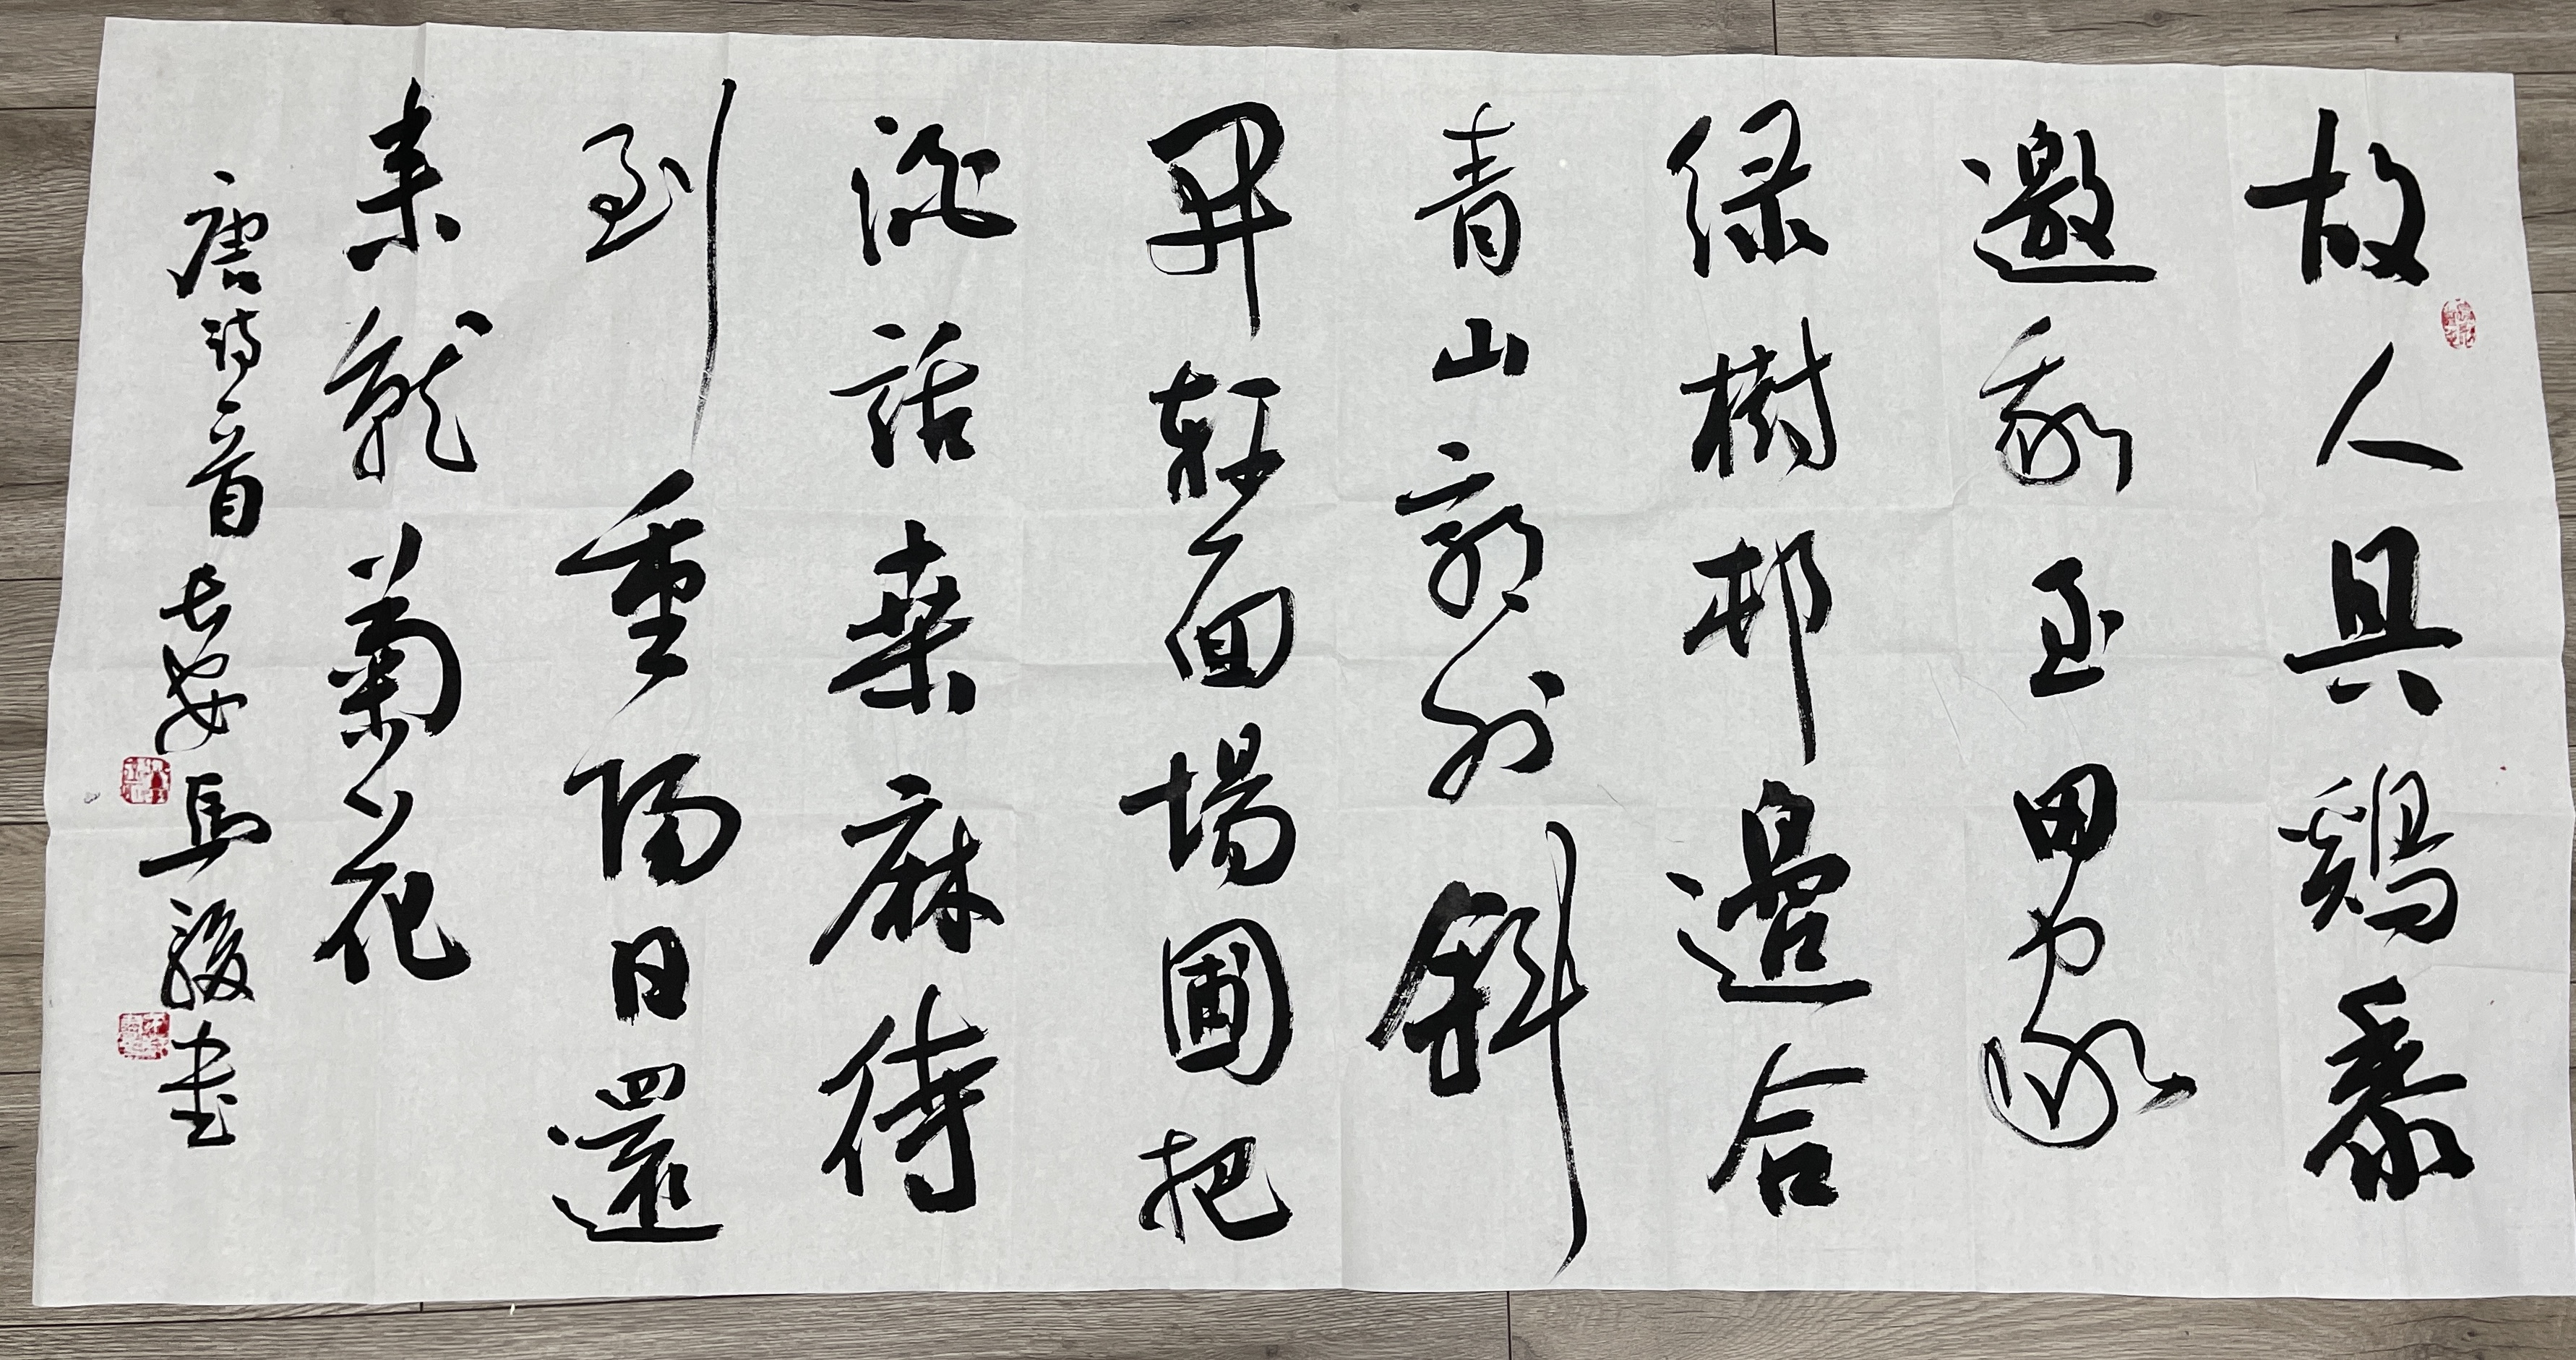 故人具鷄黍
邀我至田家
緑樹邨邊合
青山郭外斜
開軒面場圃把
酒話桑麻待
到重陽日還
来就菊花
唐詩一首 长安馬駿書